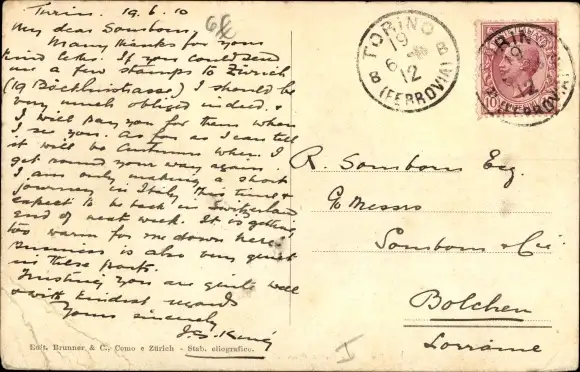 Turin. 19.6.10
My dear Somborn,
Many thanks for your
kind letter. If you could send
me a few stamps to Zürich
(19 Böcklinstrasse) I should be
very much obliged indeed. &
I will pay you for them when
I see you. As far as I can tell
it will be Autumn when I
get round your way again.
I am only making a short
journey in Italy this time &
expect to be back in Switzerland
end of next week. It is getting
too warm for me down here.
Business is also very quiet
in these parts.
Trusting you are quite well
& with kindest regards
Yours sincerely
J.S. King
Edit. Brunner & C., Como e Zürich - Stab. eliografico.
TORINO
19
6
12
B B
(FERROVIA)
TORINO
19
12
(FERROVIA)
10
R. Somborn Esq.
c/o Messrs
Somborn & Cie
Bolchen
Lorraine
I